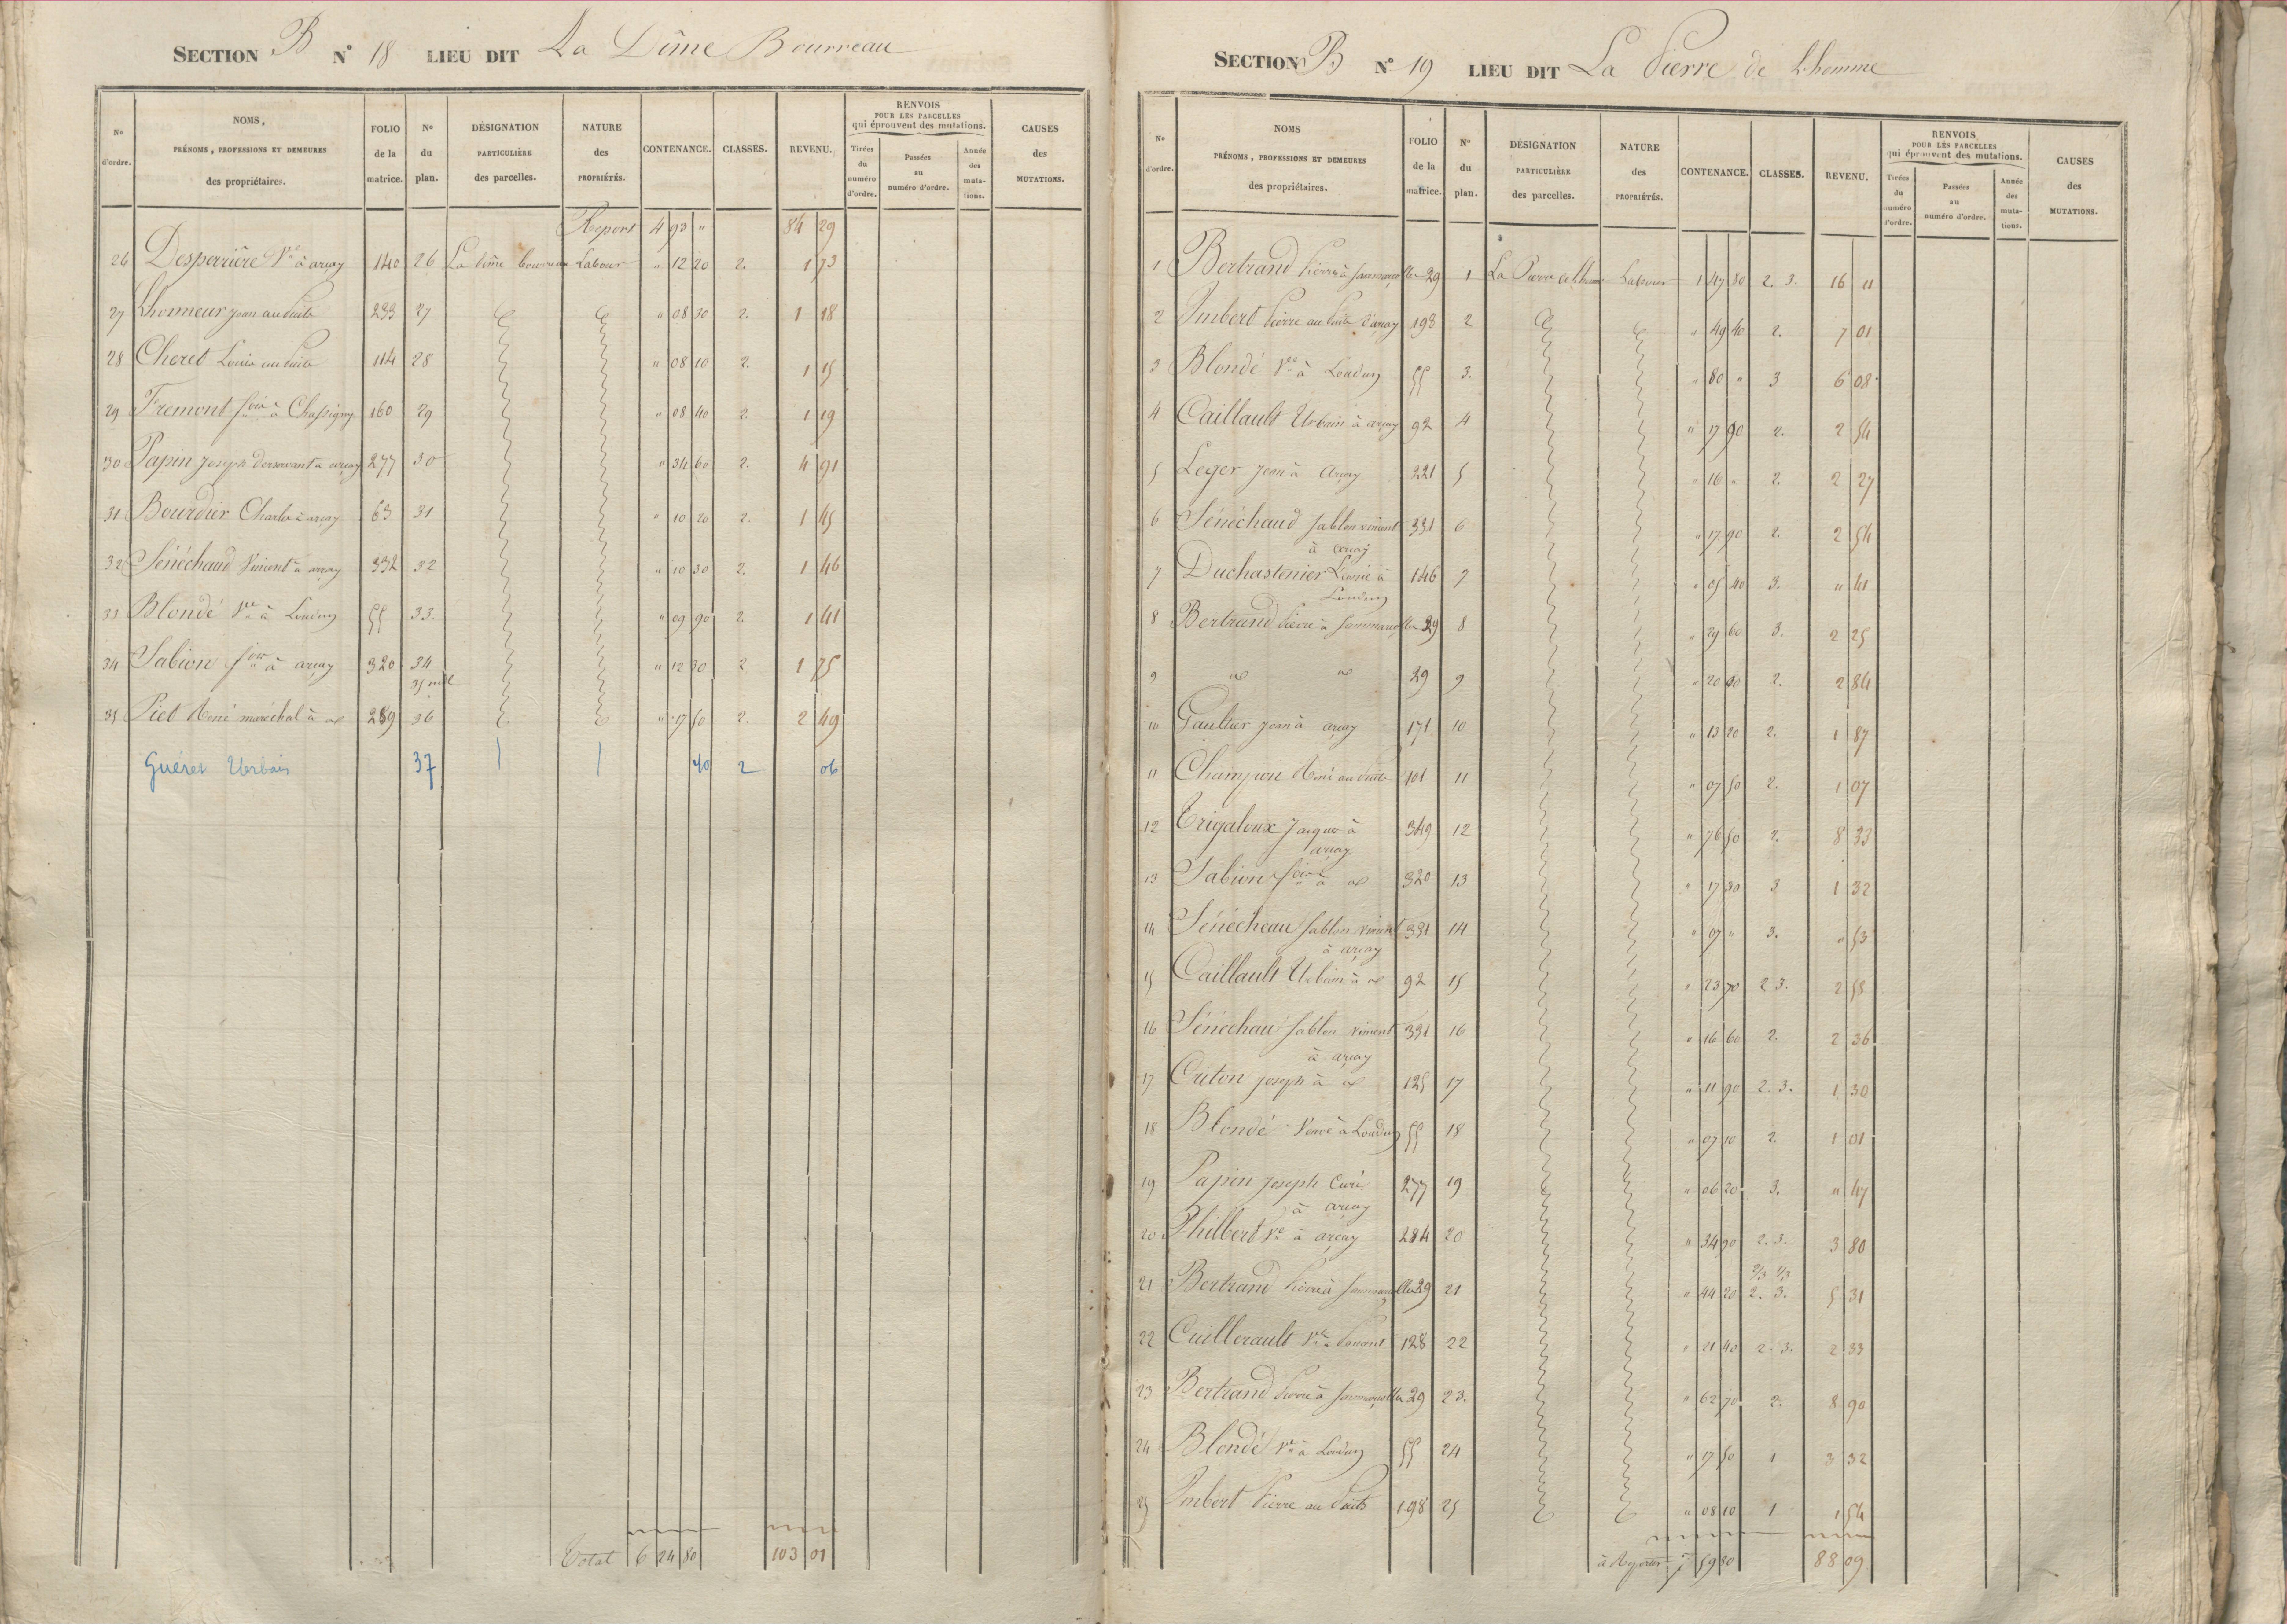 SECTION B N° 18 LIEU DIT La Dîme Bourreau
N° d'ordre. NOMS, PRÉNOMS, PROFESSIONS ET DEMEURES des propriétaires. FOLIO de la matrice. N° du plan. DÉSIGNATION PARTICULIÈRE des parcelles. NATURE des PROPRIÉTÉS. CONTENANCE. CLASSES. REVENU. RENVOIS POUR LES PARCELLES qui éprouvent des mutations. Tirées du numéro d'ordre. Passées au numéro d'ordre. Année des mutations. CAUSES des MUTATIONS.
Report 4 93 " 84 29
26 Desperrière Ve à arçay 140 26 La dîme bourreau Labour " 12 20 2. 1 73
27 Lhonneur jean au Puits 233 27 " 08 30 2. 1 18
28 Cheret Louis au Puits 114 28 " 08 10 2. 1 15
29 Fremont à Chassigny 160 29 " 08 40 2. 1 19
30 Papin joseph desservant à arçay 277 30 " 34 60 2. 4 91
31 Bourdier Charles à arçay 63 31 " 10 20 2. 1 45
32 Sénéchaud Vincent à arçay 332 32 " 10 30 2. 1 46
33 Blondé Ve à Loudun 55 33. " 09 90 2. 1 41
34 Sabion à arçay 320 34 " 12 30 2 1 75
35 nul
35 Piet René maréchal à 289 36 " 17 50 2. 2 49
Guéret Urbain 37 40 2 06
Total 6 24 80 103 01
SECTION B N° 19 LIEU DIT La Pierre de Lhomme
N° d'ordre. NOMS PRÉNOMS, PROFESSIONS ET DEMEURES des propriétaires. FOLIO de la matrice. N° du plan. DÉSIGNATION PARTICULIÈRE des parcelles. NATURE des PROPRIÉTÉS. CONTENANCE. CLASSES. REVENU. RENVOIS POUR LES PARCELLES qui éprouvent des mutations. Tirées du numéro d'ordre. Passées au numéro d'ordre. Année des mutations. CAUSES des MUTATIONS.
1 Bertrand Pierre à Sammarçolles 29 1 La Pierre de Lhomme Labour 1 47 80 2. 3. 16 11
2 Imbert Pierre au Puits d'arçay 198 2 " 49 40 2. 7 01
3 Blondé Ve à Loudun 55 3. " 80 " 3 6 08
4 Caillault Urbain à arçay 92 4 " 17 90 2. 2 54
5 Leger Jean à Arçay 221 5 " 16 " 2. 2 27
6 Sénéchaud Sablon vincent 331 6 " 17 90 2. 2 54
à arçay
7 Duchastenier à 146 7 " 05 40 3. " 41
Loudun
8 Bertrand Pierre à Sammarçolles 29 8 " 29 60 3. 2 25
9 29 9 " 20 2. 2 84
10 Gaultier Jean à arçay 171 10 " 13 20 2. 1 87
11 Champion René au Puits 101 11 " 07 50 2. 1 07
12 Trigaloux Jacques à 349 12 " 76 50 2. 8 33
arçay
13 Sabion à 320 13 " 17 30 3 1 32
14 Sénécheau Sablon vincent 331 14 " 07 " 3. " 53
à arçay
15 Caillault Urbain à 92 15 " 23 70 2 3. 2 55
16 Sénéchau Sablon vincent 331 16 " 16 60 2. 2 36
à arçay
17 Criton joseph à 125 17 " 11 90 2. 3. 1 30
18 Blondé Veuve à Loudun 55 18 " 07 10 2. 1 01
19 Papin joseph Curé 277 19 " 06 20 3. " 47
à arçay
20 Philbert Ve à arçay 284 20 " 34 90 2. 3. 3 80
2/3 1/3
21 Bertrand Pierre à Sammarçolles 29 21 " 44 20 2. 3. 5 31
22 Cuillerault Ve à 128 22 " 21 40 2. 3. 2 33
23 Bertrand Pierre à Sammarçolles 29 23. " 62 70 2. 8 90
24 Blondé Ve à Loudun 55 24 " 17 50 1 3 32
25 Imbert Pierre au Puits 198 25 " 08 10 1 1 54
à Reporter 7 59 80 88 09